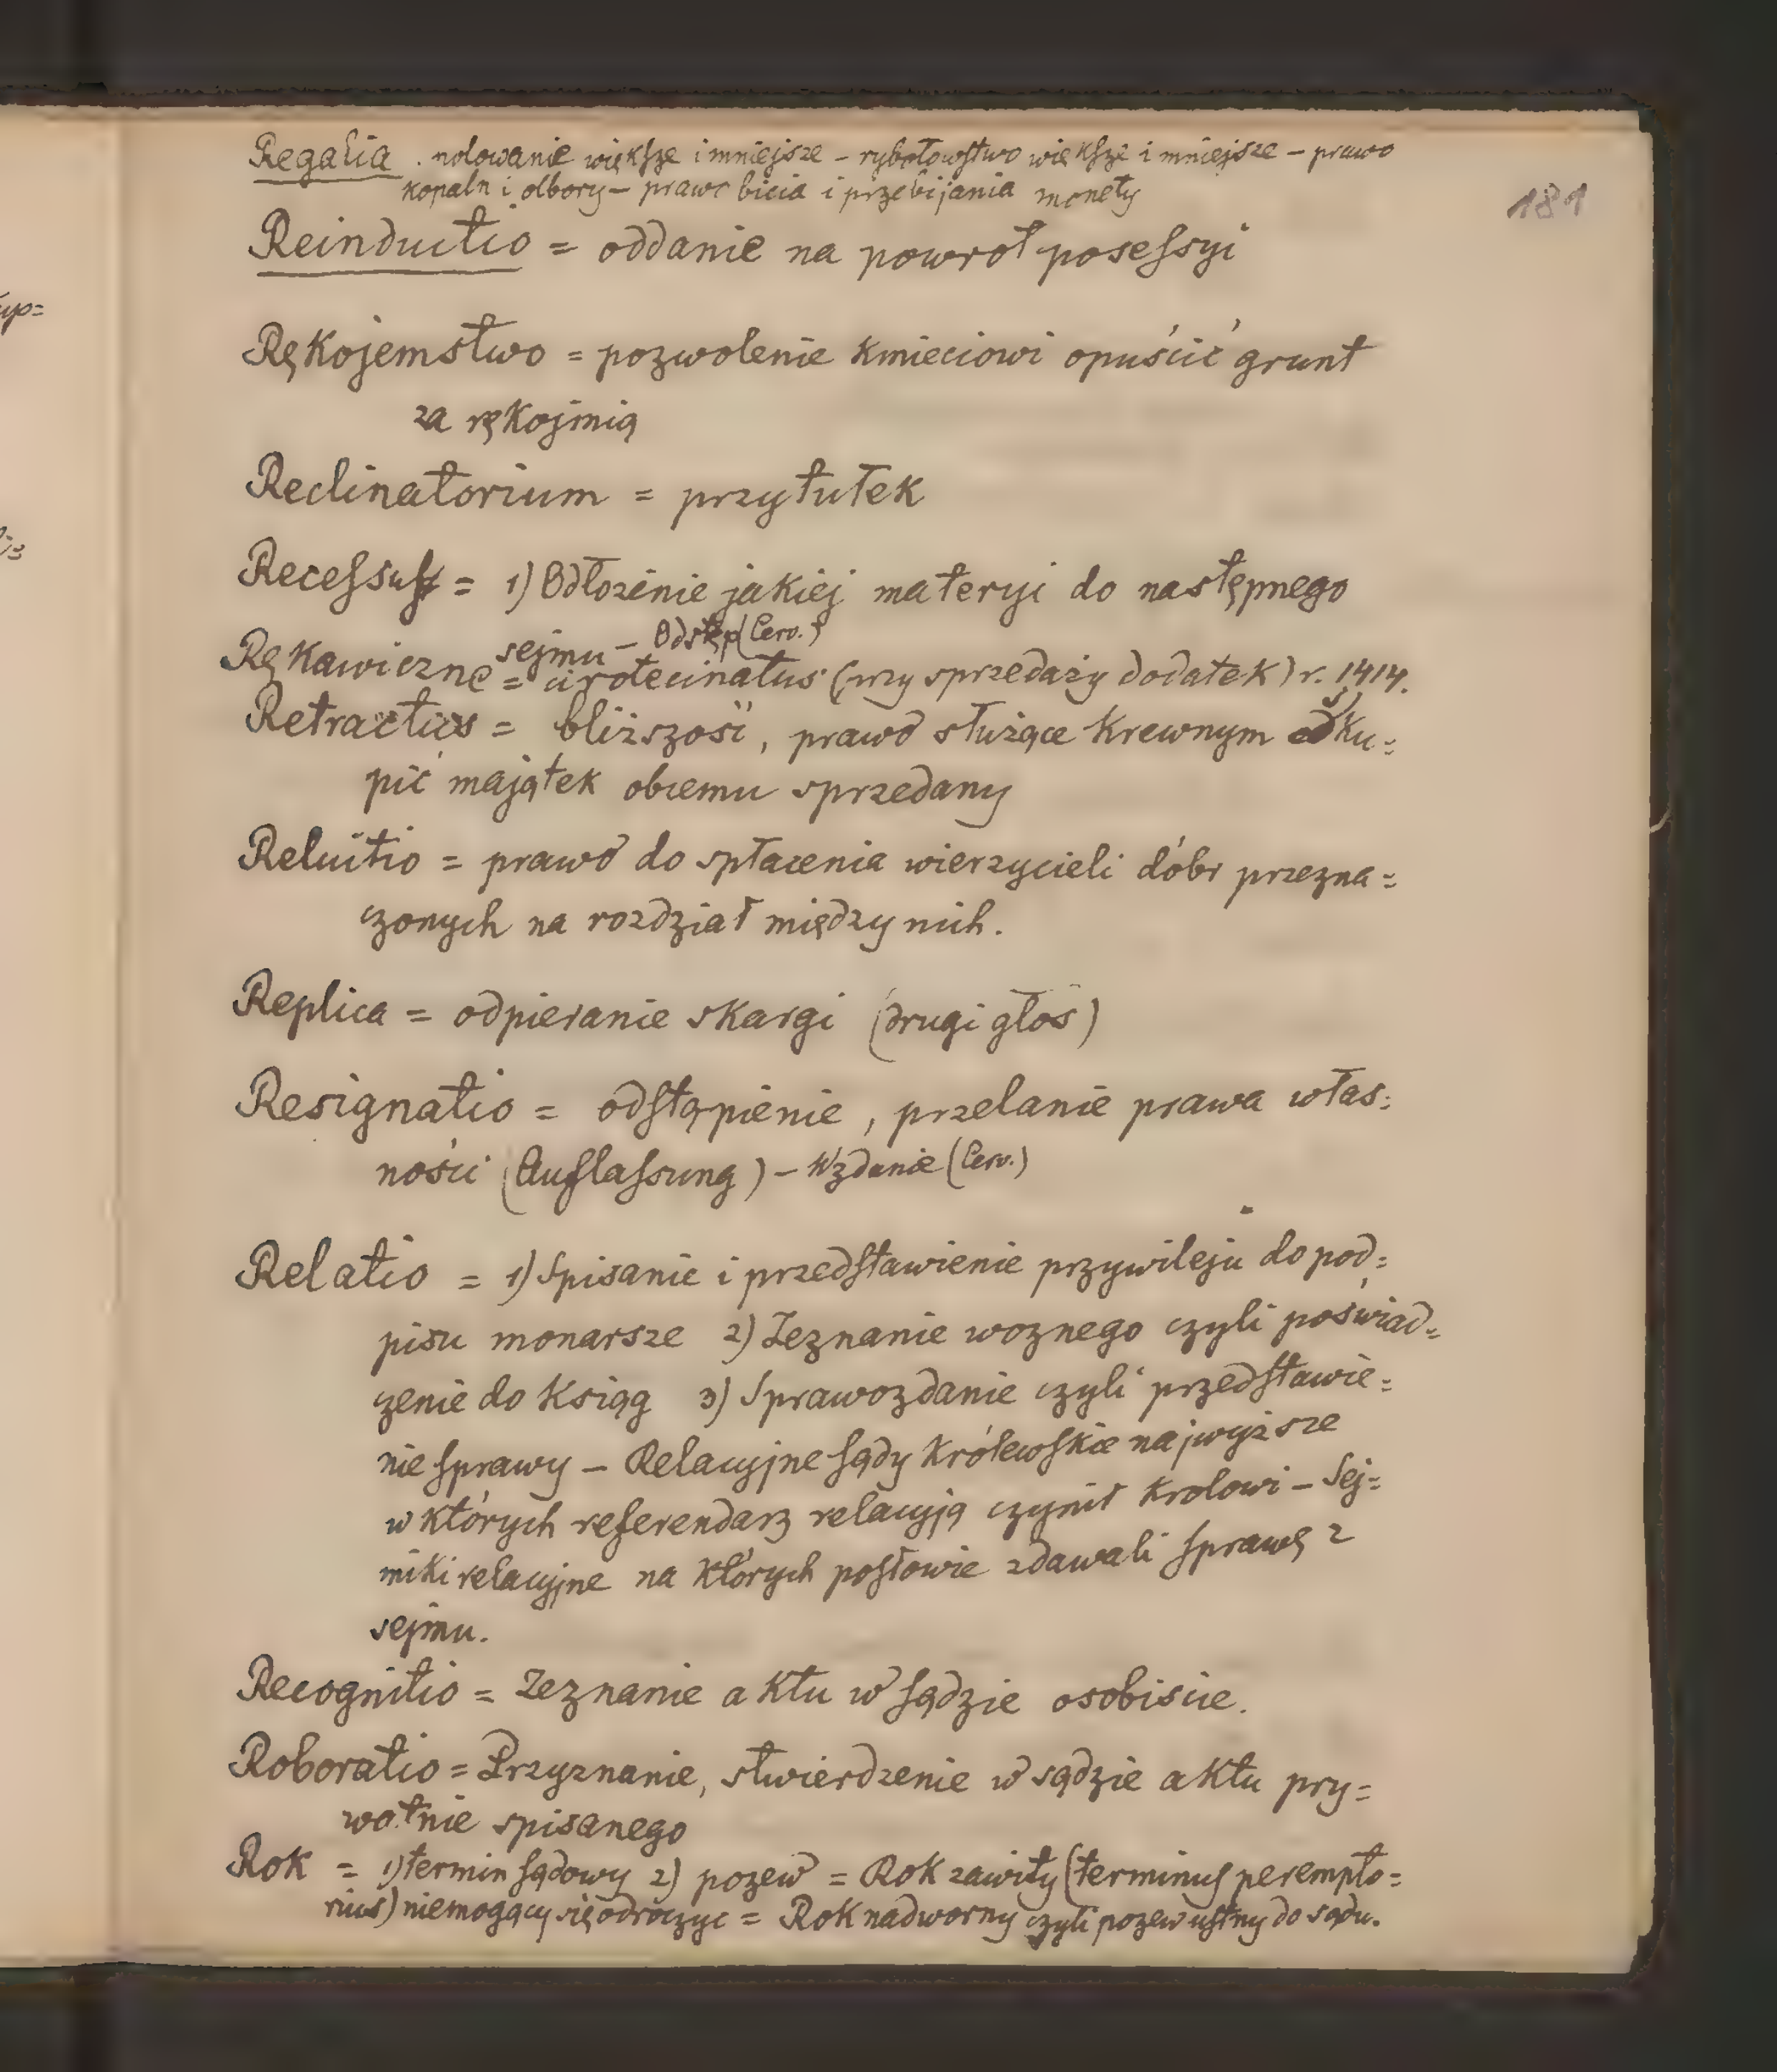 Regalia. polowanie większe i mniejsze – rybołowstwo większe i mniejsze – prawo
kopaln i olbory – prawo bicia i przebijania monety
181
Reinductio = oddanie na powrot posessyi
Rękojemstwo = pozwolenie kmieciowi opuścić grunt
za rękojmią
Reclinatorium = przytułek
Recessus = 1) Odłożenie jakiej materyi do następnego
sejmu – Odstęp (Cerv.)
Rękawiczne = cirotecinatus (przy sprzedaży dodatek) r. 1414.
Retractus = bliższość, prawo służące krewnym odku=
pić majątek obcemu sprzedany
Reluitio = prawo do spłacenia wierzycieli dóbr przezna=
czonych na rozdział między nich.
Replica = odpieranie skargi (drugi głos)
Resignatio = odstąpienie, przelanie prawa włas=
ności (Auflassung) – Wzdanie (Cerv.)
Relatio = 1) Spisanie i przedstawienie przywileju do pod=
pisu monarsze 2) Zeznanie woznego czyli poświad=
czenie do ksiąg 3) Sprawozdanie czyli przedstawie=
nie sprawy – Relacyjne sądy królewskie najwyższe
w których referendarz relacyją czynił krolowi – Sej=
miki relacyjne na których posłowie zdawali sprawę z
sejmu.
Recognitio = Zeznanie aktu w sądzie osobiście.
Roboratio = Przyznanie, stwierdzenie w sądzie aktu pry=
watnie spisanego
Rok = 1) termin sądowy 2) pozew = Rok zawity (terminus perempto=
rius) niemogący się odroczyc = Rok nadworny czyli pozew ustny do sądu.